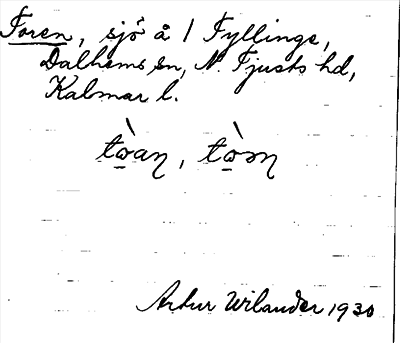 Toren, sjö å 1 Fyllinge,
Dalhems sn, N. Tjusts hd,
Kalmar l.
Artur Wilander 1930